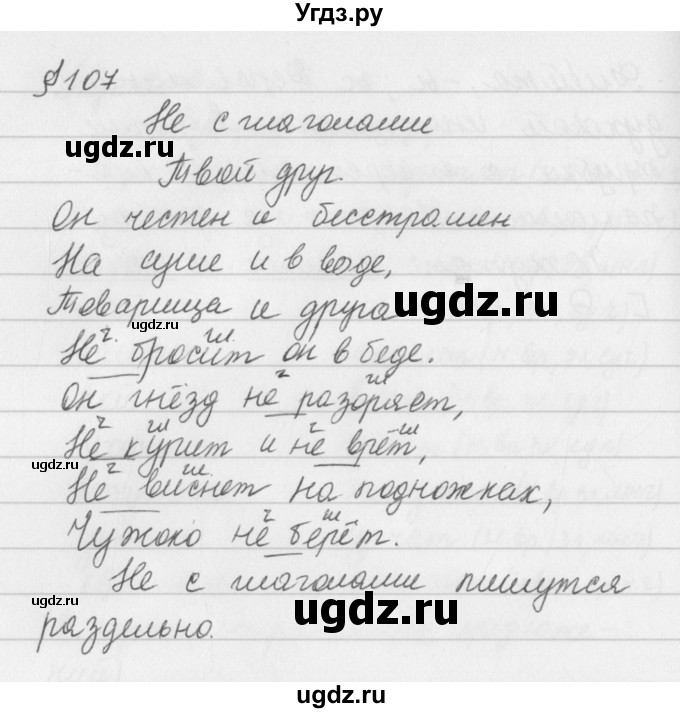 Угдз.ру
§107
Не с глаголами
ugdz.ru
Твой друг.
Он честен и бесстрашен
На суше и в воде,
Товарища и друга
ugdz.ru
ugdz.ru
ч. гл
Не бросит он в беде.
ч гл
Он гнёзд не разоряет,
ч гл ч гл
Не курит и не врёт,
ugdz.ru
ч гл
Не виснет на подножках,
ч гл
Чужого не берёт.
Не с глаголами пишутся
ugdz.ru
ugdz.ru
раздельно.
ugdz.ru